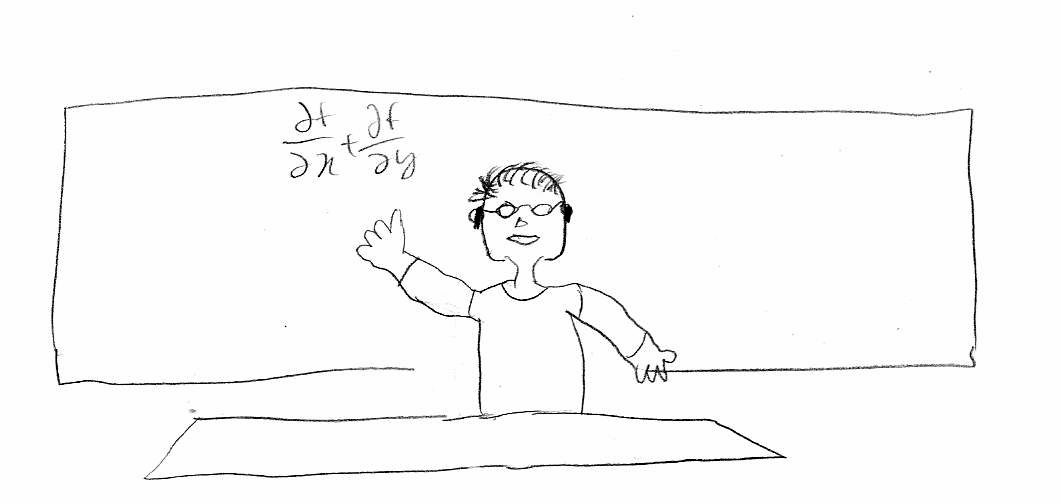 ∂f/∂x + ∂f/∂y